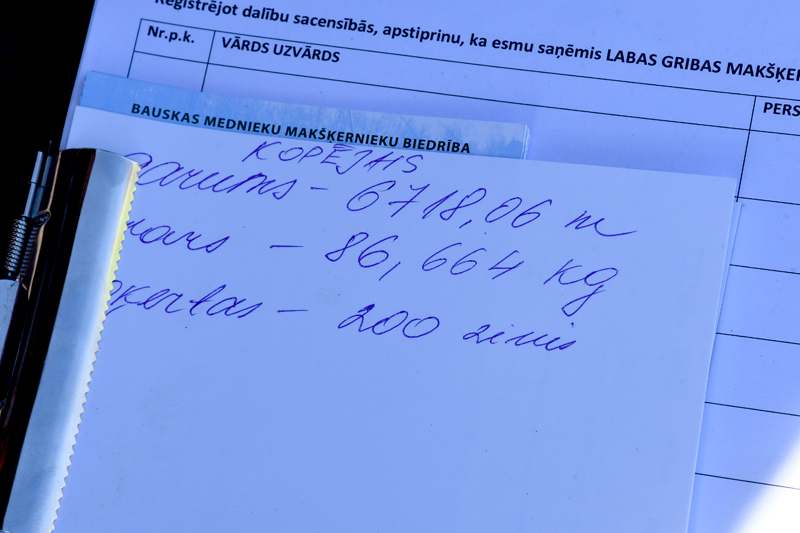 Reģistrējot dalību sacensībās, apstiprinu, ka esmu saņēmis LABAS GRIBAS MAKŠĶER
Nr.p.k. VĀRDS UZVĀRDS
PERS
BAUSKAS MEDNIEKU MAKŠĶERNIEKU BIEDRĪBA
KOPĒJAIS
garums – 6718,06 m
vars – 86,664 kg
ķertas – 200 zivis